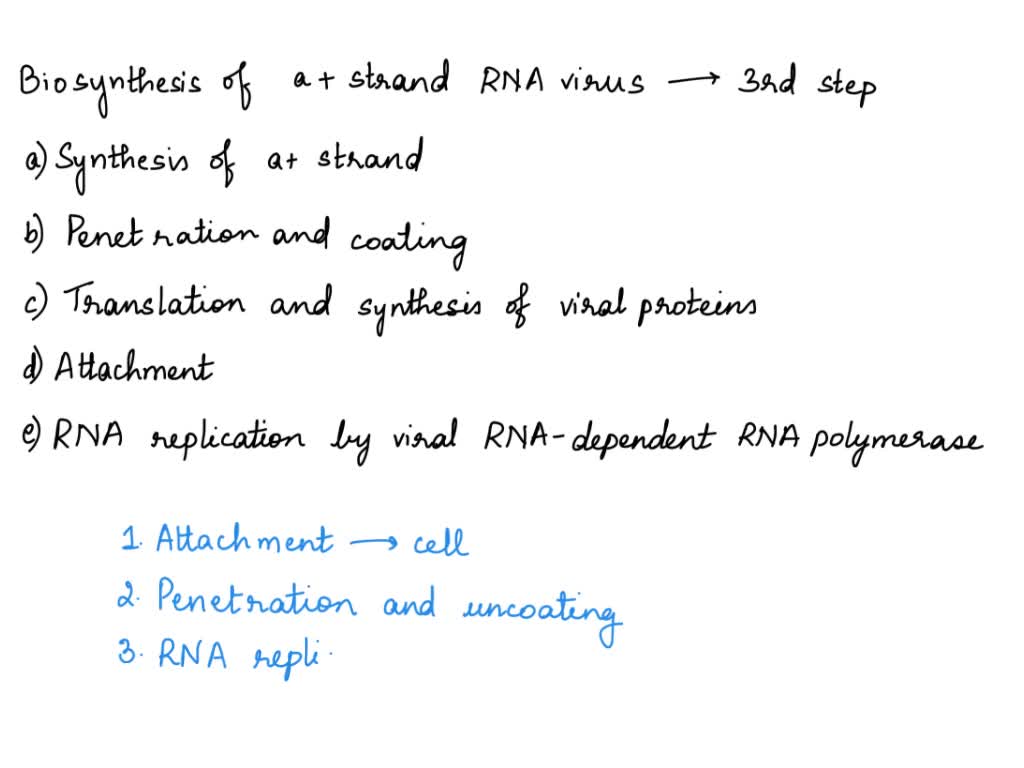 Biosynthesis of a+ strand RNA virus → 3rd step
a) Synthesis of a+ strand
b) Penetration and coating
c) Translation and synthesis of viral proteins
d) Attachment
e) RNA replication by viral RNA-dependent RNA polymerase
1. Attachment → cell
2. Penetration and uncoating
3. RNA repli.